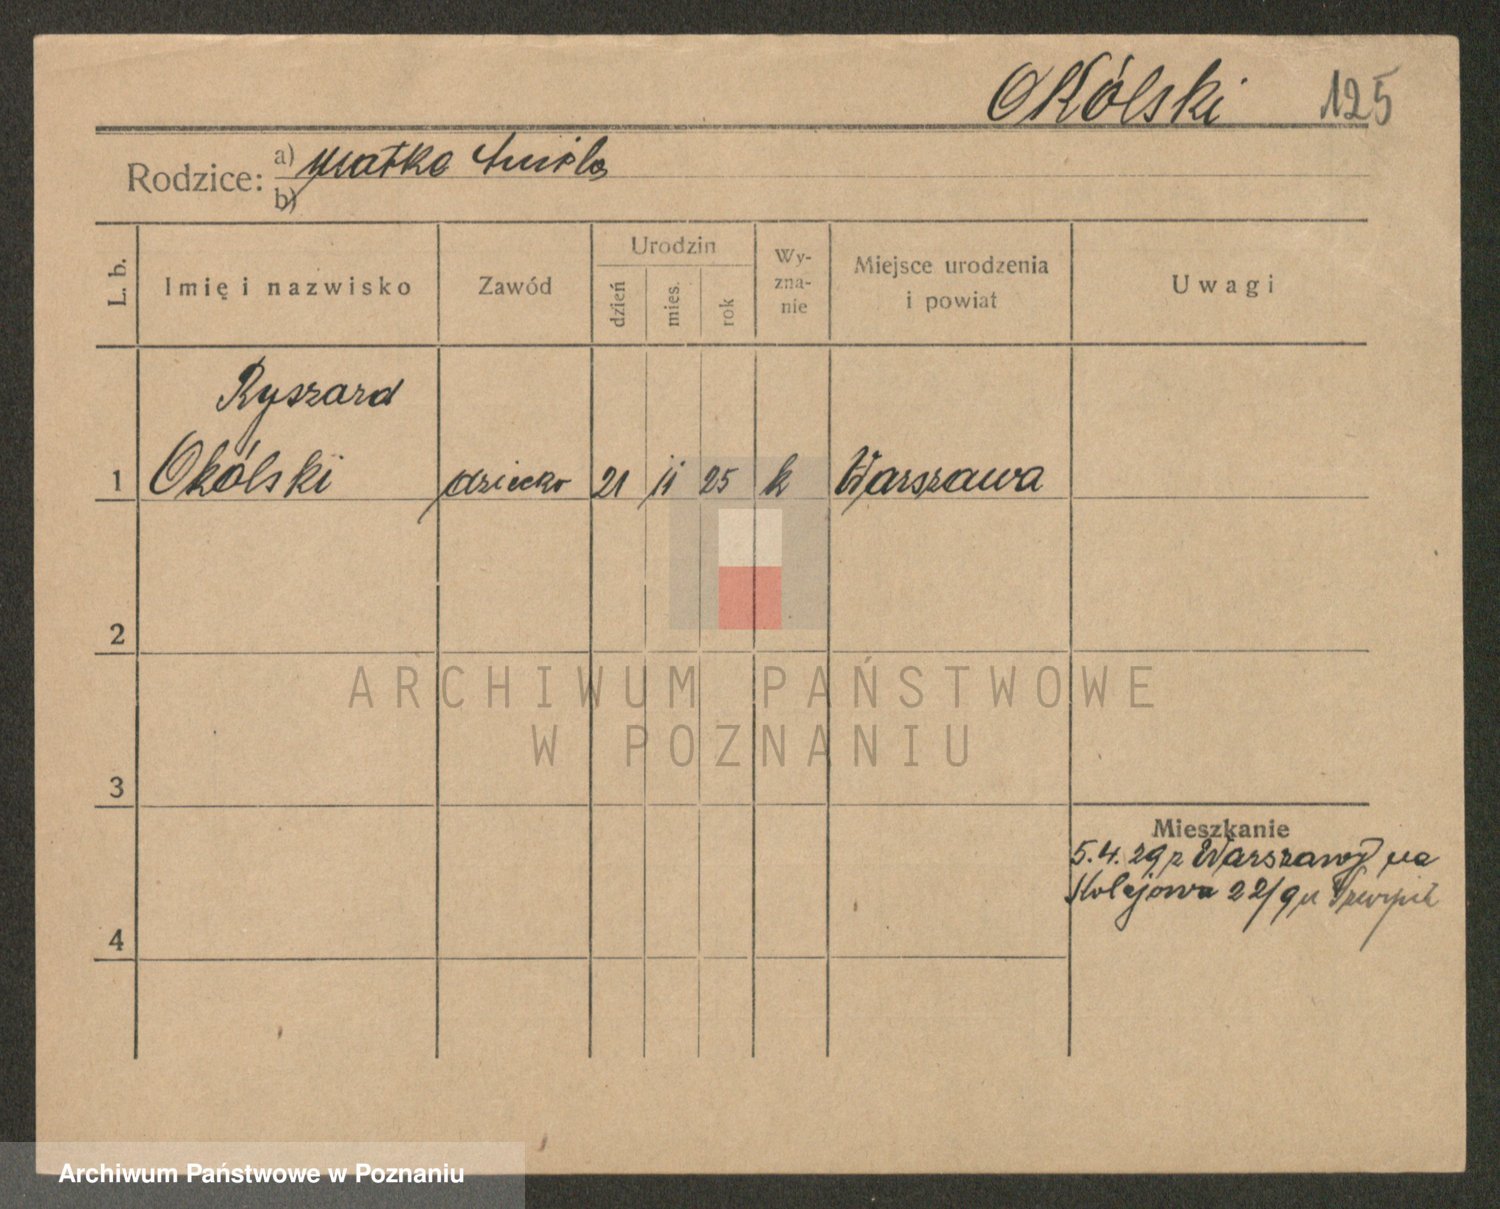 Okólski 125
Rodzice: a) matka
b)
L. b. Imię i nazwisko Zawód Urodzin dzień mies. rok Wy-zna-nie Miejsce urodzenia i powiat Uwagi
Ryszard
1 Okólski dziecko 21 11 25 k Warszawa
2
3
4
Mieszkanie
5.4.29 z Warszawy na
Kolejowa 22/9 u
ARCHIWUM PAŃSTWOWE
W POZNANIU
Archiwum Państwowe w Poznaniu